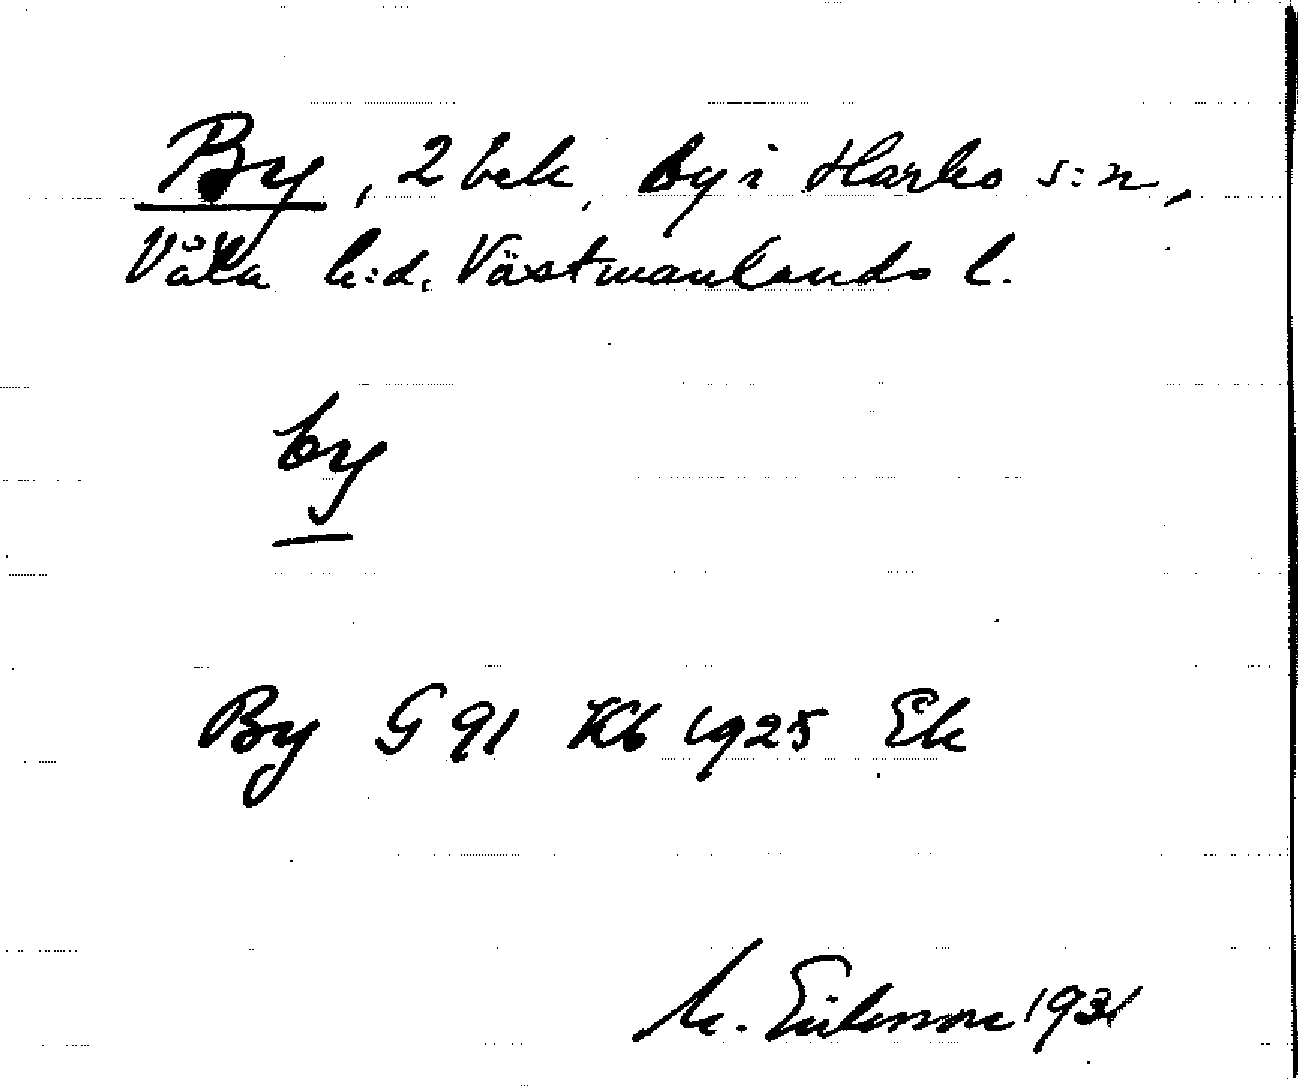 By, 2 bek, By i Harbo s:n,
Våla h:d. Västmanlands l.
by
By G 91 Kb 1925 Ek
M. Eriksson 1931